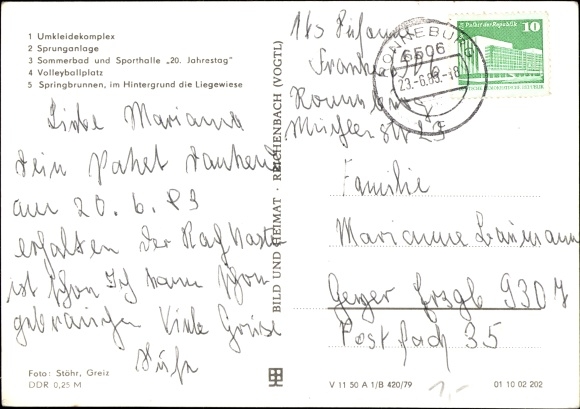 1 Umkleidekomplex
2 Sprunganlage
3 Sommerbad und Sporthalle „20. Jahrestag"
4 Volleyballplatz
5 Springbrunnen, im Hintergrund die Liegewiese
Liebe Marianne
Dein Paket dankend
am 20. 6. 83
erhalten der
ist schon Ich kann schon
gebrauchen Viele Grüße
Foto: Stöhr, Greiz
DDR 0,25 M
BILD UND HEIMAT · REICHENBACH (VOGTL)
RONNEBURG
6506
23.-6.83.-18
P. Palast der Republik
10
DDR
Abs
Familie
Marianne
Geyer Erzgb 9307
Postfach 35
V 11 50 A 1/B 420/79
1,-
01 10 02 202